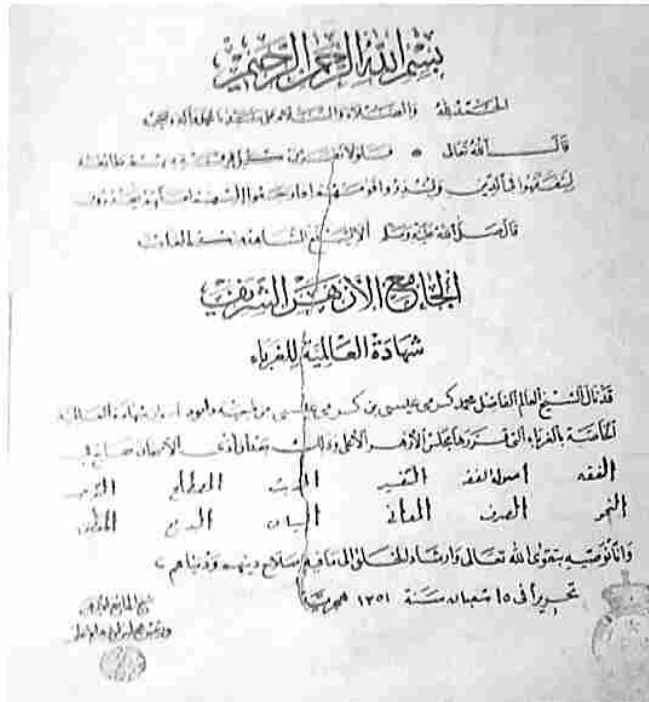 بسم الله الرحمن الرحيم
الحمد لله والصلاة والسلام على سيدنا محمد وآله وصحبه
قال الله تعالى * فلولا نفر من كل فرقة منهم طائفة
ليتفقهوا في الدين ولينذروا قومهم إذا رجعوا إليهم لعلهم يحذرون
قال صلى الله عليه وسلم ألا ليبلغ الشاهد منكم الغائب
الجامع الأزهر الشريف
شهادة العالمية للغرباء
قد نال الشيخ العالم الفاضل محمد كرمى عيسى بن كرمى عيسى من ناحية شهادة العالمية
الخاصة بالغرباء التى قررها مجلس الأزهر الأعلى وذلك بعد أن أدى الامتحان بنجاح فى
الفقه اصول الفقه التفسير الحديث المصطلح التوحيد
النحو الصرف المعانى البيان البديع المنطق
وانا نوصيه بتقوى الله تعالى وارشاد الخلق الى ما فيه صلاح دينهم ودنياهم
تحريرا فى ١٥ شعبان سنة ١٣٥١ هجرية
شيخ الجامع الأزهر